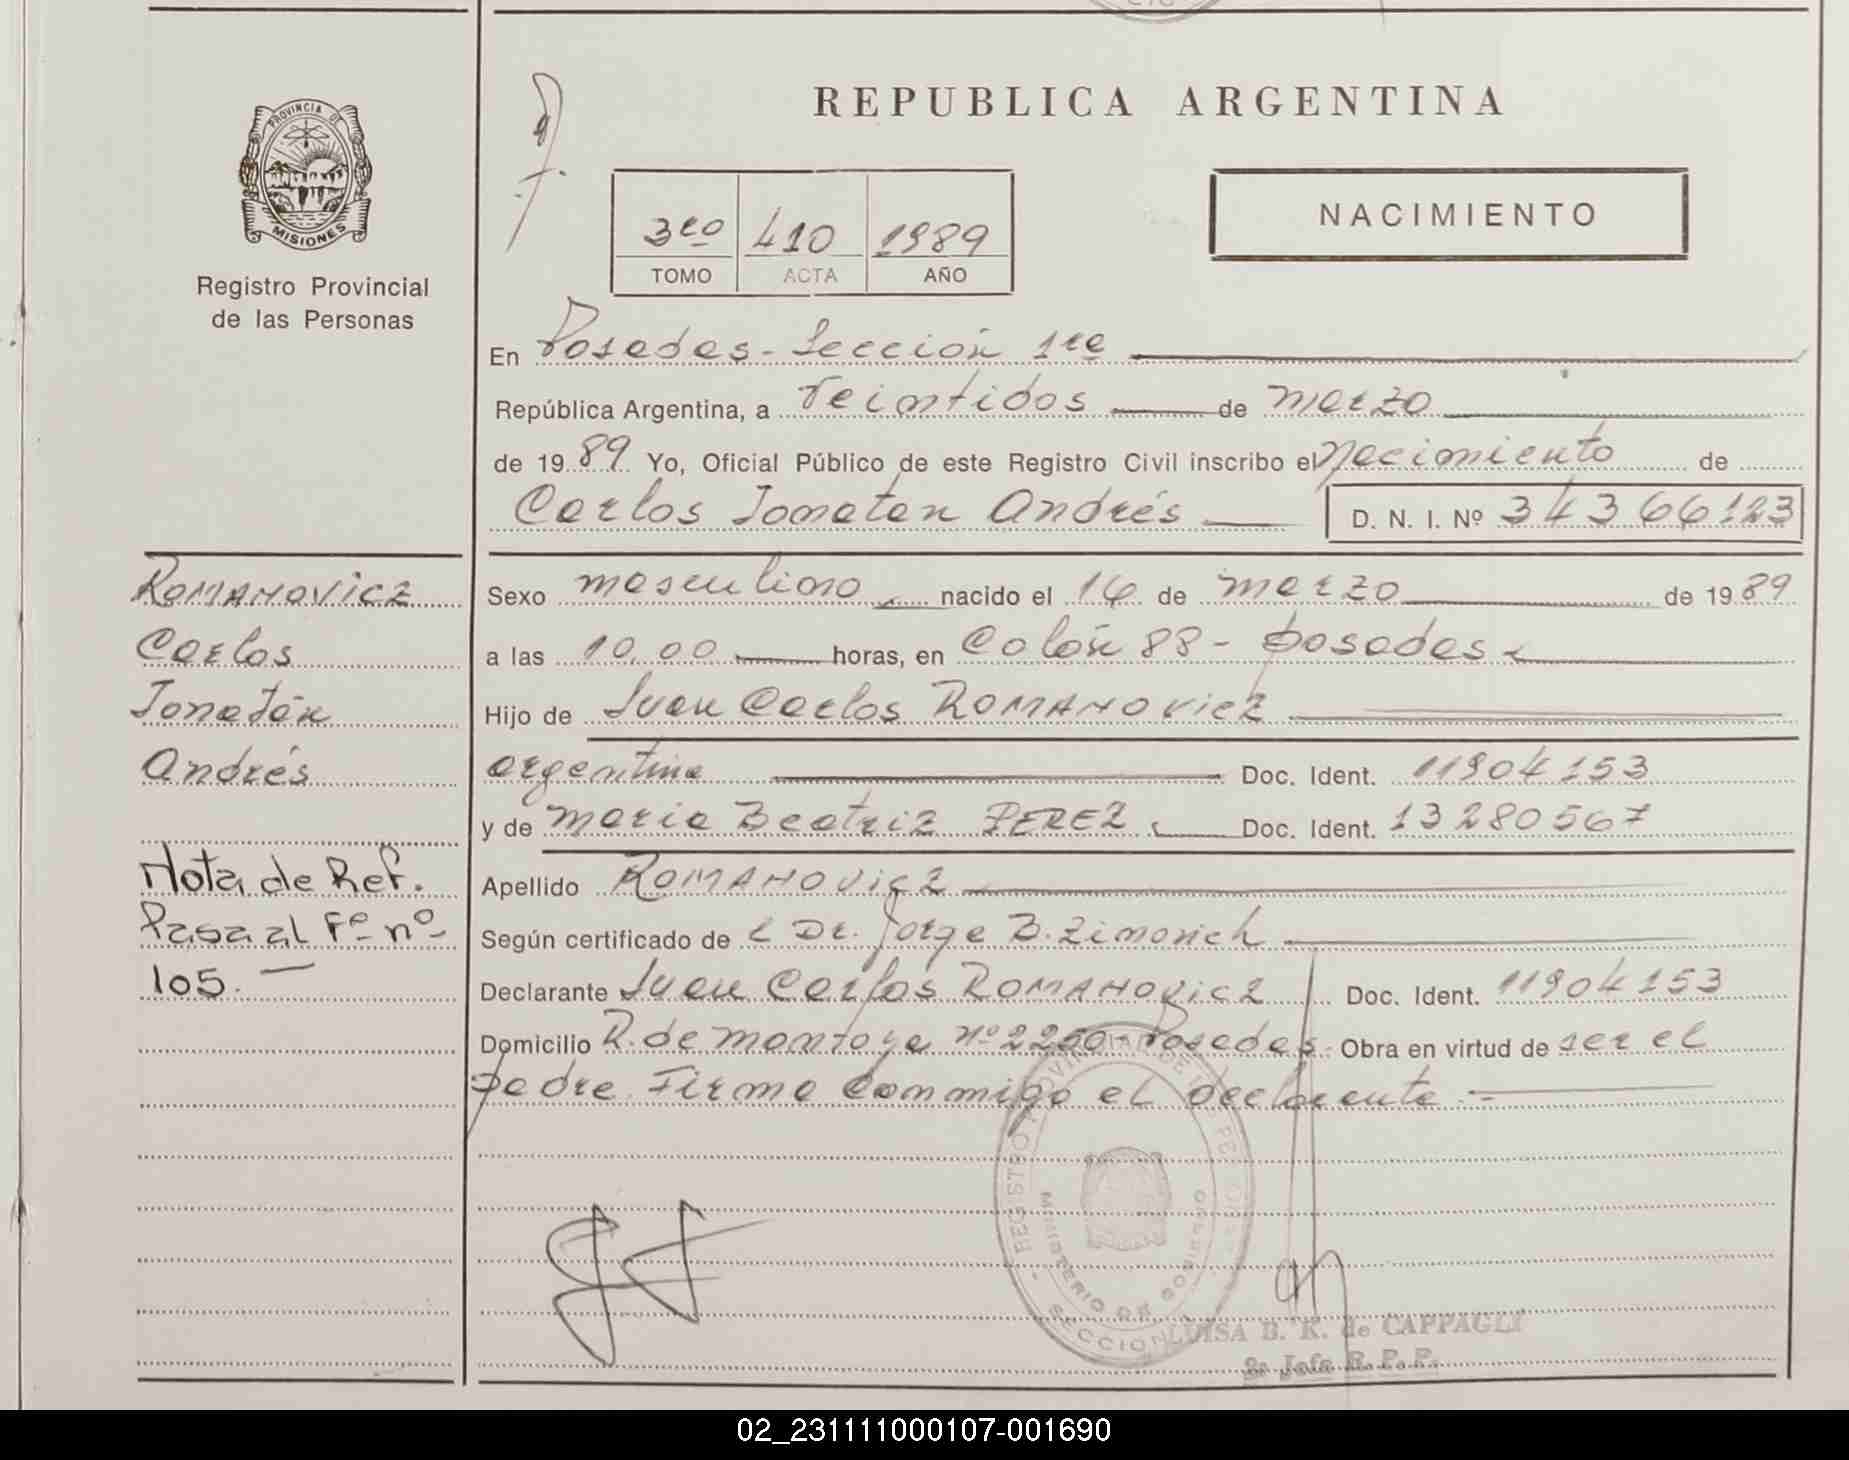 PROVINCIA DE
MISIONES
Registro Provincial
de las Personas
REPUBLICA ARGENTINA
3ro 410 1989
TOMO ACTA AÑO
NACIMIENTO
En Posadas - Sección 1ra
República Argentina, a Veintidos de marzo
de 1989 Yo, Oficial Público de este Registro Civil inscribo el Nacimiento de
Carlos Jonatan Andrés D. N. I. Nº 34366123
Sexo masculino nacido el 14 de marzo de 1989
a las 10,00 horas, en Colón 88 - Posadas
Hijo de Juan Carlos ROMANOVICZ
argentina Doc. Ident. 11904153
y de Maria Beatriz PEREZ Doc. Ident. 13280567
Apellido ROMANOVICZ
Según certificado de l Dr. Jorge B. Zimovich
Declarante Juan Carlos ROMANOVICZ Doc. Ident. 11904153
Domicilio R. de Montoya Nº 2250 - Posadas. Obra en virtud de ser el
padre. Firma conmigo el declarante.-
ROMANOVICZ
Carlos
Jonatán
Andrés
Nota de Ref.
Pasa al Fº nº
105.-
REGISTRO PROVINCIAL DE LAS PERSONAS
MINISTERIO DE GOBIERNO
SECCION 1
LUISA B. K. de CAPPAGLI
Jefe R. P. P.
02_231111000107-001690